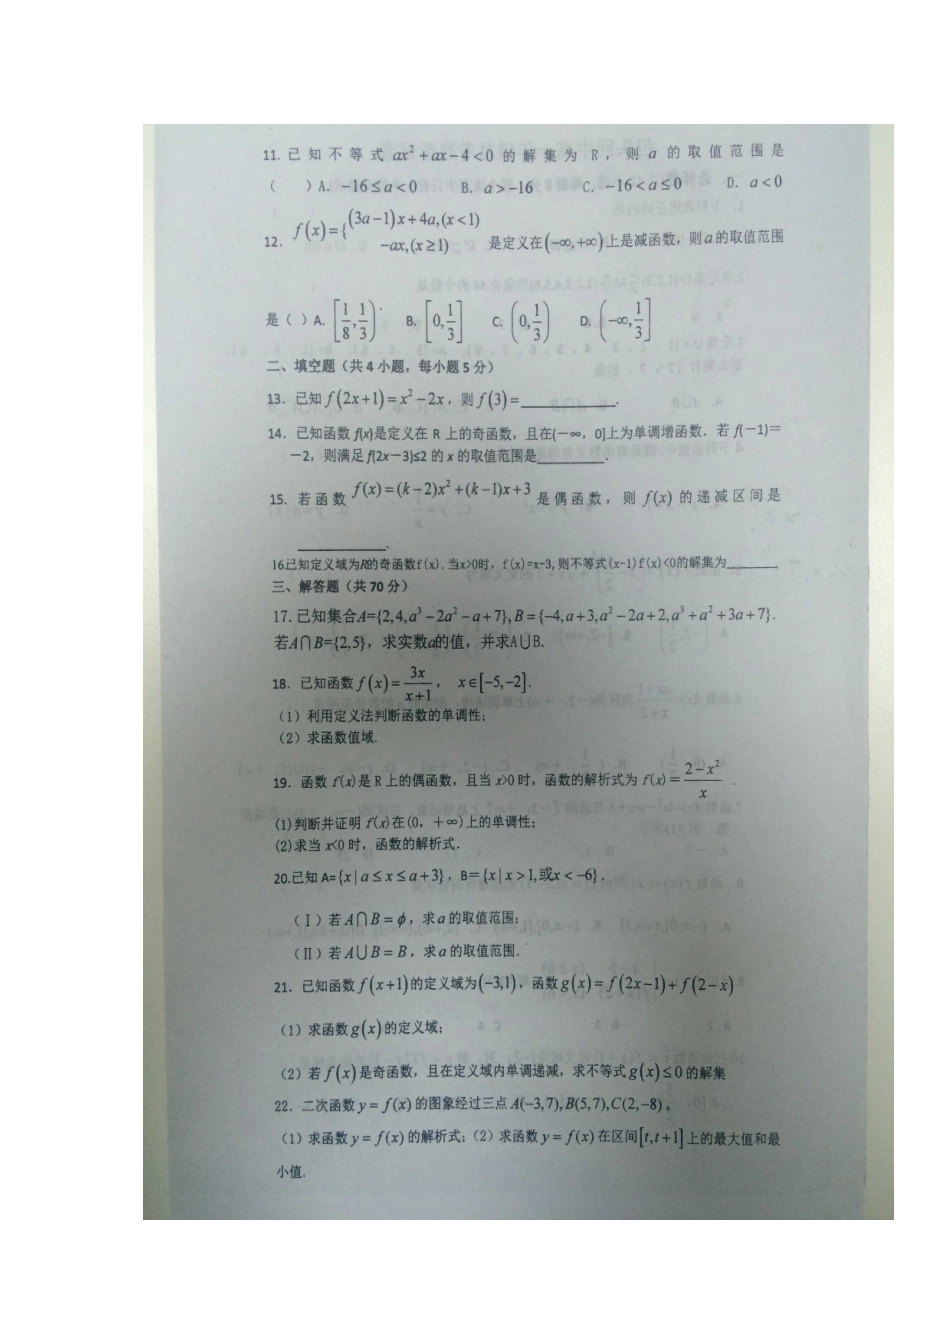 11. 已知不等式 ax²+ax-4<0 的解集为 R，则 a 的取值范围是
（ ）A. -16≤a<0 B. a>-16 C. -16<a≤0 D. a<0
12. f(x)={(3a-1)x+4a,(x<1) -ax,(x≥1) 是定义在(-∞,+∞)上是减函数，则a的取值范围
是（ ）A. [1/8,1/3) B. [0,1/3] C. (0,1/3) D. (-∞,1/3]
二、填空题（共 4 小题，每小题 5 分）
13. 已知 f(2x+1)=x²-2x，则 f(3)=________.
14. 已知函数 f(x)是定义在 R 上的奇函数，且在(-∞，0]上为单调增函数．若 f(-1)=
-2，则满足 f(2x-3)≤2 的 x 的取值范围是________.
15. 若函数 f(x)=(k-2)x²+(k-1)x+3 是偶函数，则 f(x) 的递减区间是
________.
16已知定义域为R的奇函数f(x).当x>0时，f(x)=x-3,则不等式(x-1)f(x)<0的解集为______
三、解答题（共 70 分）
17. 已知集合A={2,4,a³-2a²-a+7},B={-4,a+3,a²-2a+2,a³+a²+3a+7}.
若A∩B={2,5}，求实数a的值，并求A∪B.
18. 已知函数 f(x)=3x/(x+1)，x∈[-5,-2].
（1）利用定义法判断函数的单调性;
（2）求函数值域.
19. 函数 f(x)是 R 上的偶函数，且当 x>0 时，函数的解析式为 f(x)=(2-x²)/x .
(1)判断并证明 f(x)在(0，+∞)上的单调性;
(2)求当 x<0 时，函数的解析式．
20.已知 A={x|a≤x≤a+3}，B={x|x>1,或x<-6}．
（Ⅰ）若 A∩B=ϕ，求a的取值范围;
（Ⅱ）若 A∪B=B，求a的取值范围.
21. 已知函数 f(x+1)的定义域为(-3,1)，函数 g(x)=f(2x-1)+f(2-x)
（1）求函数g(x)的定义域;
（2）若 f(x)是奇函数，且在定义域内单调递减，求不等式g(x)≤0的解集
22. 二次函数 y=f(x)的图象经过三点 A(-3,7),B(5,7),C(2,-8)。
（1）求函数 y=f(x)的解析式;（2）求函数 y=f(x)在区间[t,t+1]上的最大值和最
小值.